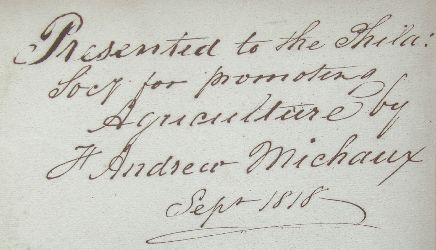 Presented to the Phila:
Socy for promoting
Agriculture by
F Andrew Michaux
Sept 1818